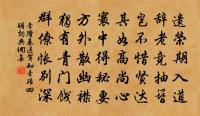 遺榮期入道
辞老竟抽簪
豈不惜賢達
其如高尚心
寰中得秘要
方外散幽襟
獨有青门餞
群僚悵別深
李隆基送賀知章歸四
明詞典